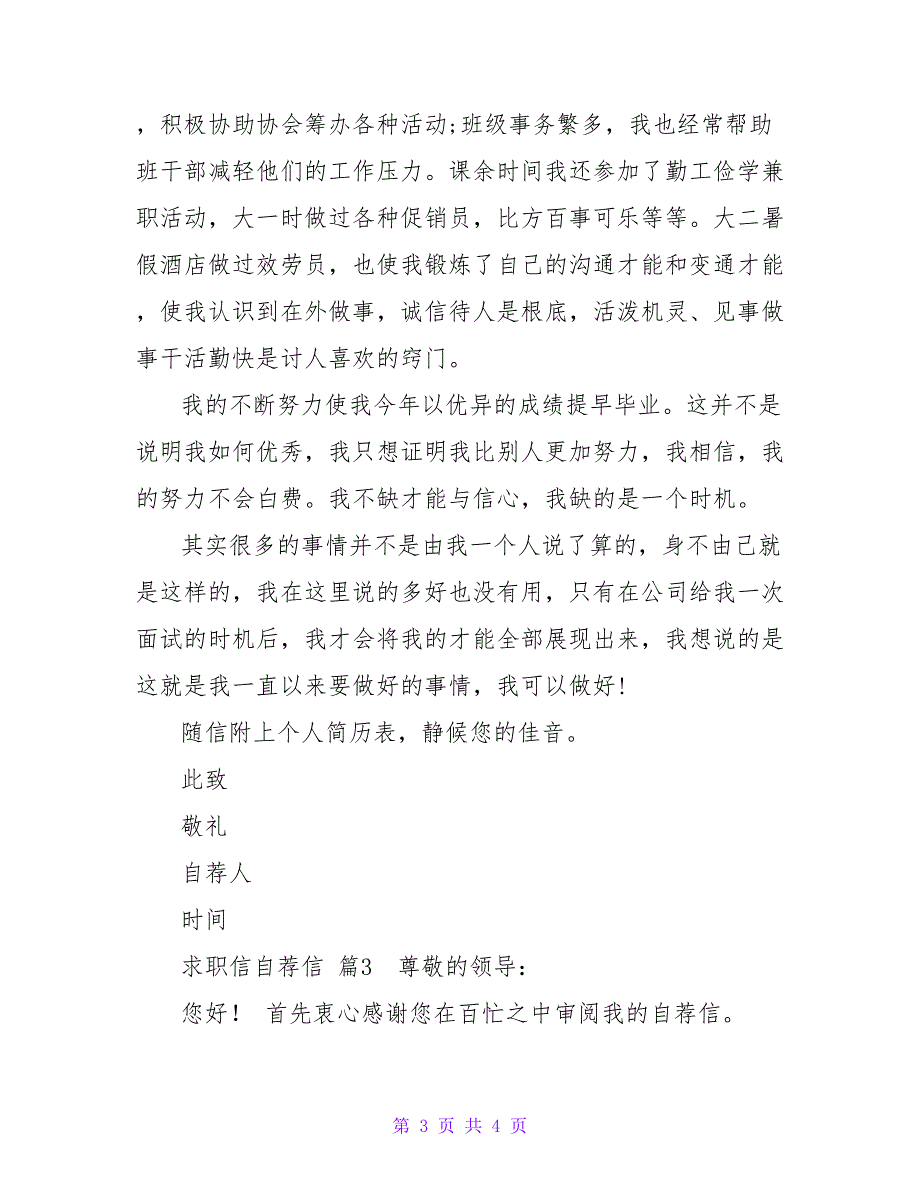 ，积极协助协会筹办各种活动;班级事务繁多，我也经常帮助
班干部减轻他们的工作压力。课余时间我还参加了勤工俭学兼
职活动，大一时做过各种促销员，比方百事可乐等等。大二暑
假酒店做过效劳员，也使我锻炼了自己的沟通才能和变通才能
，使我认识到在外做事，诚信待人是根底，活泼机灵、见事做
事干活勤快是讨人喜欢的窍门。
我的不断努力使我今年以优异的成绩提早毕业。这并不是
说明我如何优秀，我只想证明我比别人更加努力，我相信，我
的努力不会白费。我不缺才能与信心，我缺的是一个时机。
其实很多的事情并不是由我一个人说了算的，身不由己就
是这样的，我在这里说的多好也没有用，只有在公司给我一次
面试的时机后，我才会将我的才能全部展现出来，我想说的是
这就是我一直以来要做好的事情，我可以做好!
随信附上个人简历表，静候您的佳音。
此致
敬礼
自荐人
时间
求职信自荐信 篇3 尊敬的领导：
您好！ 首先衷心感谢您在百忙之中审阅我的自荐信。
第 3 页 共 4 页